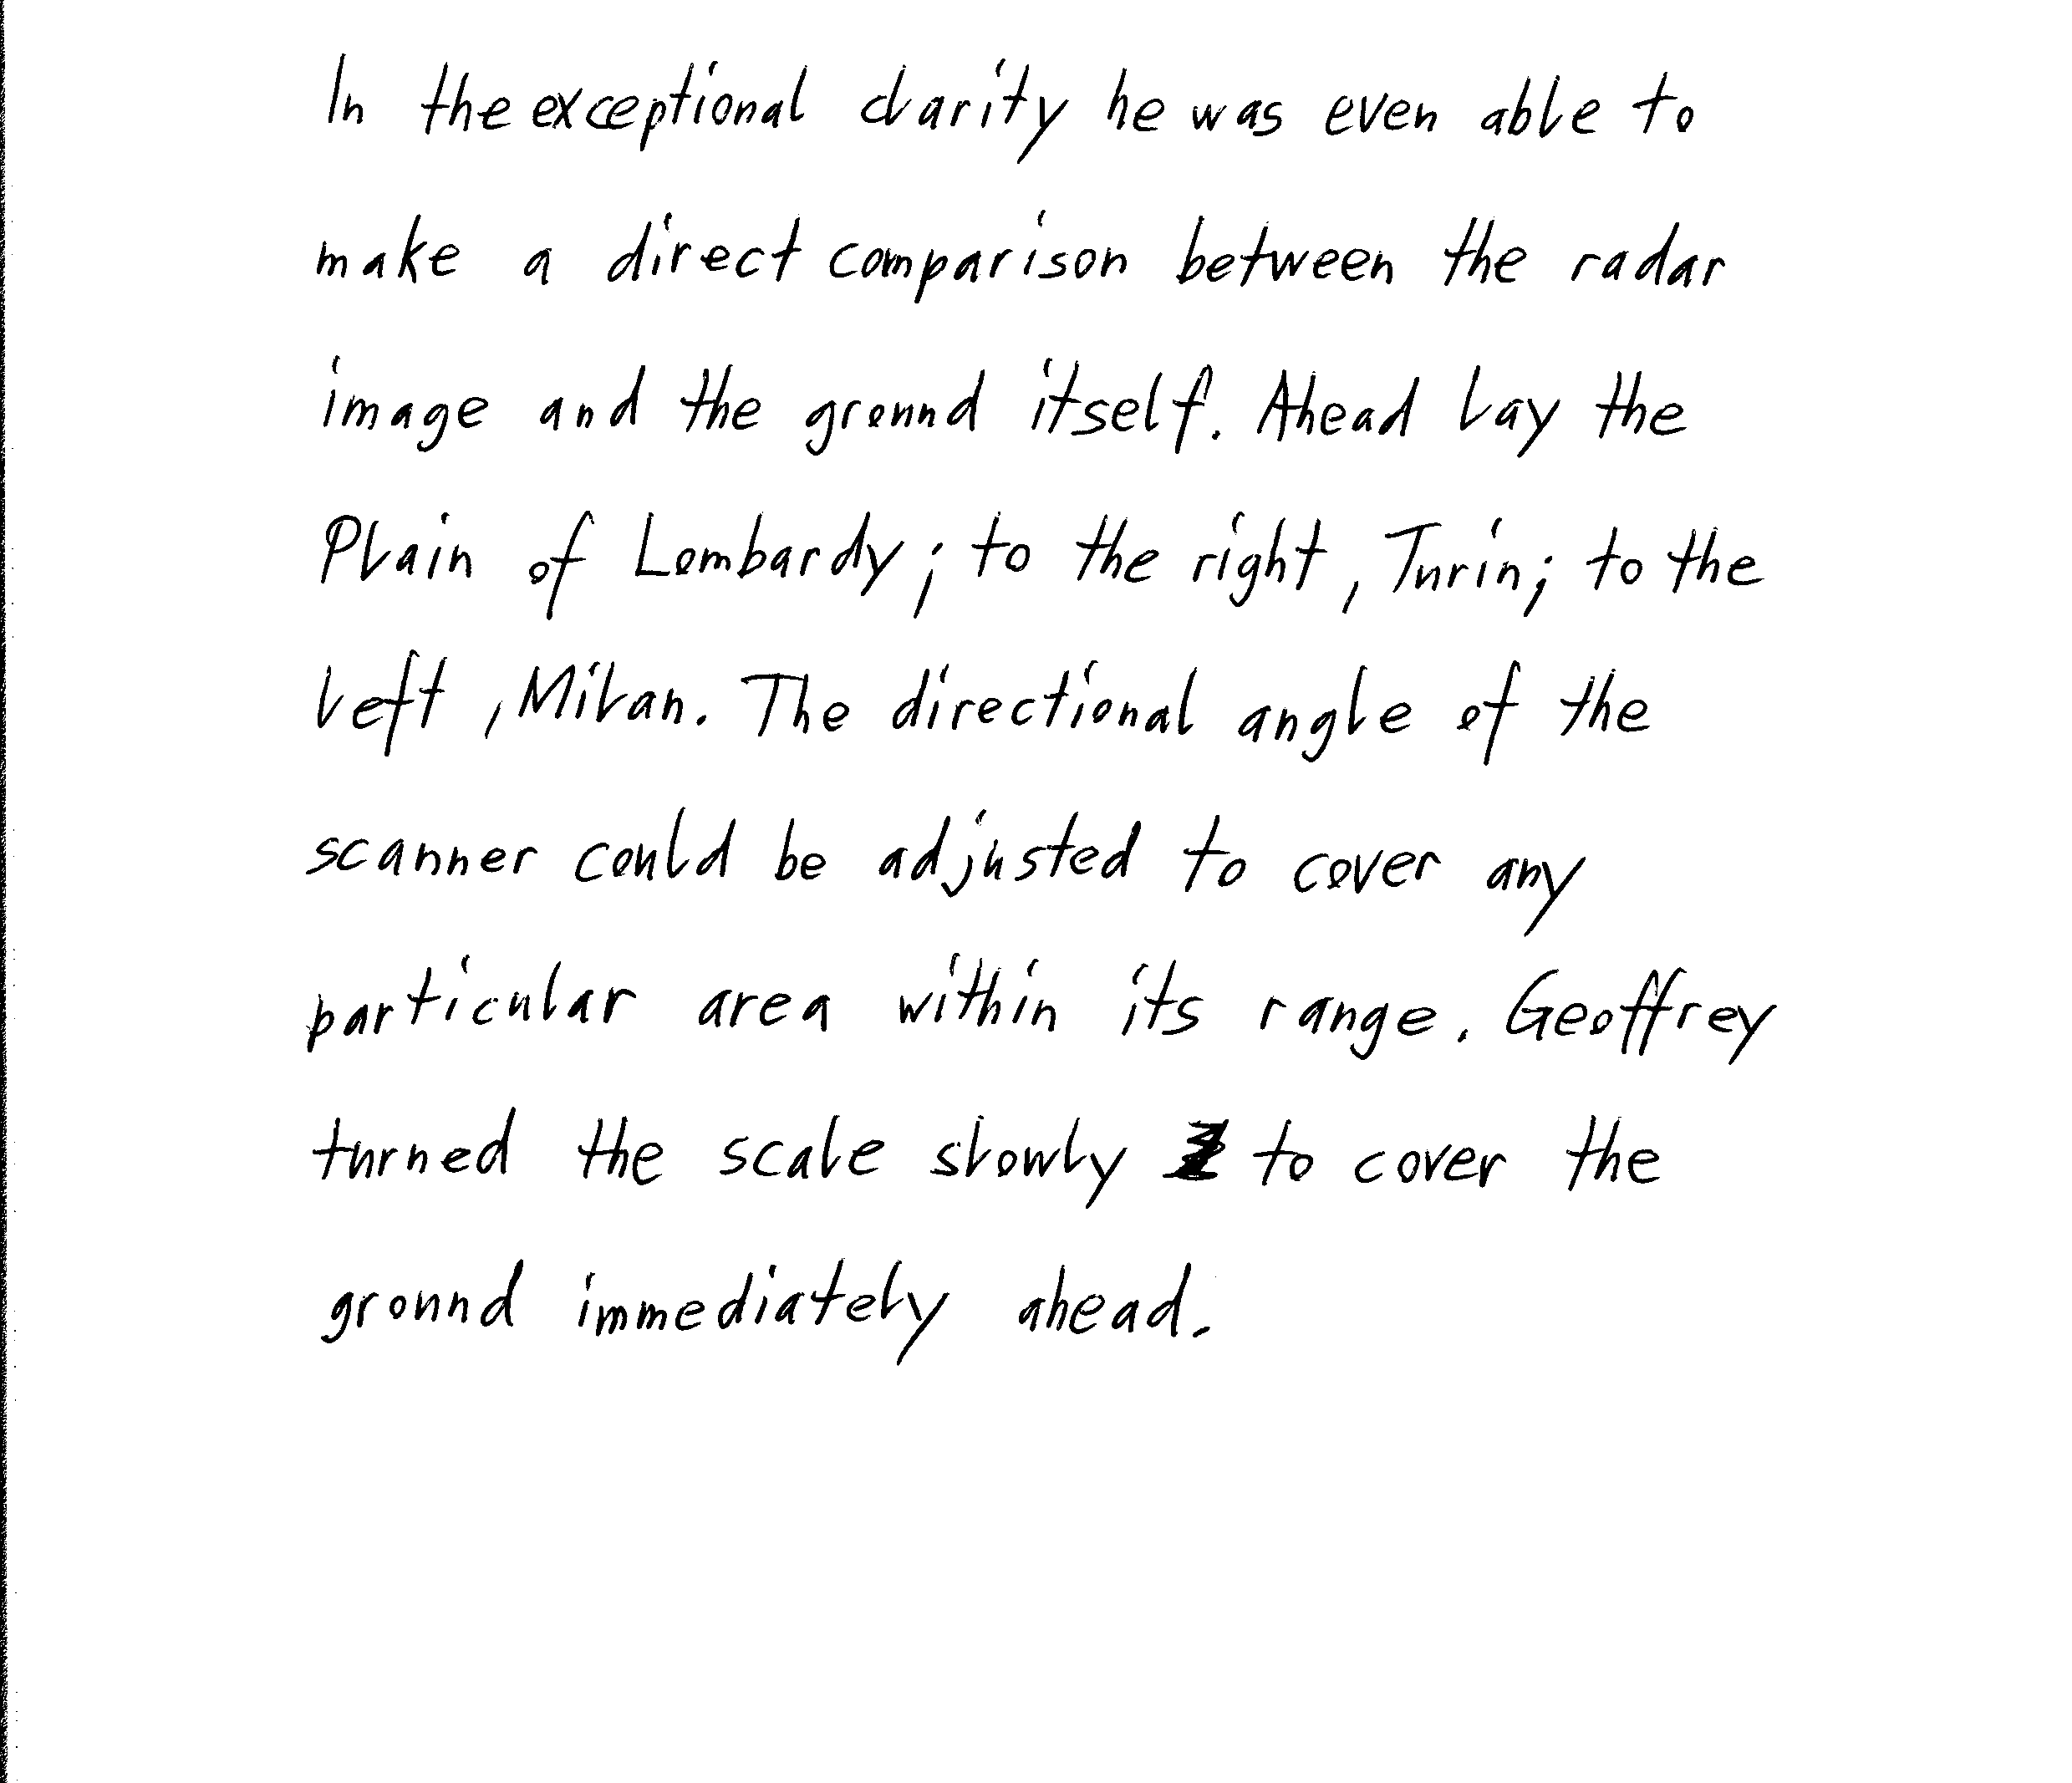 In the exceptional clarity he was even able to
make a direct comparison between the radar
image and the ground itself. Ahead lay the
Plain of Lombardy; to the right, Turin; to the
left, Milan. The directional angle of the
scanner could be adjusted to cover any
particular area within its range. Geoffrey
turned the scale slowly to cover the
ground immediately ahead.